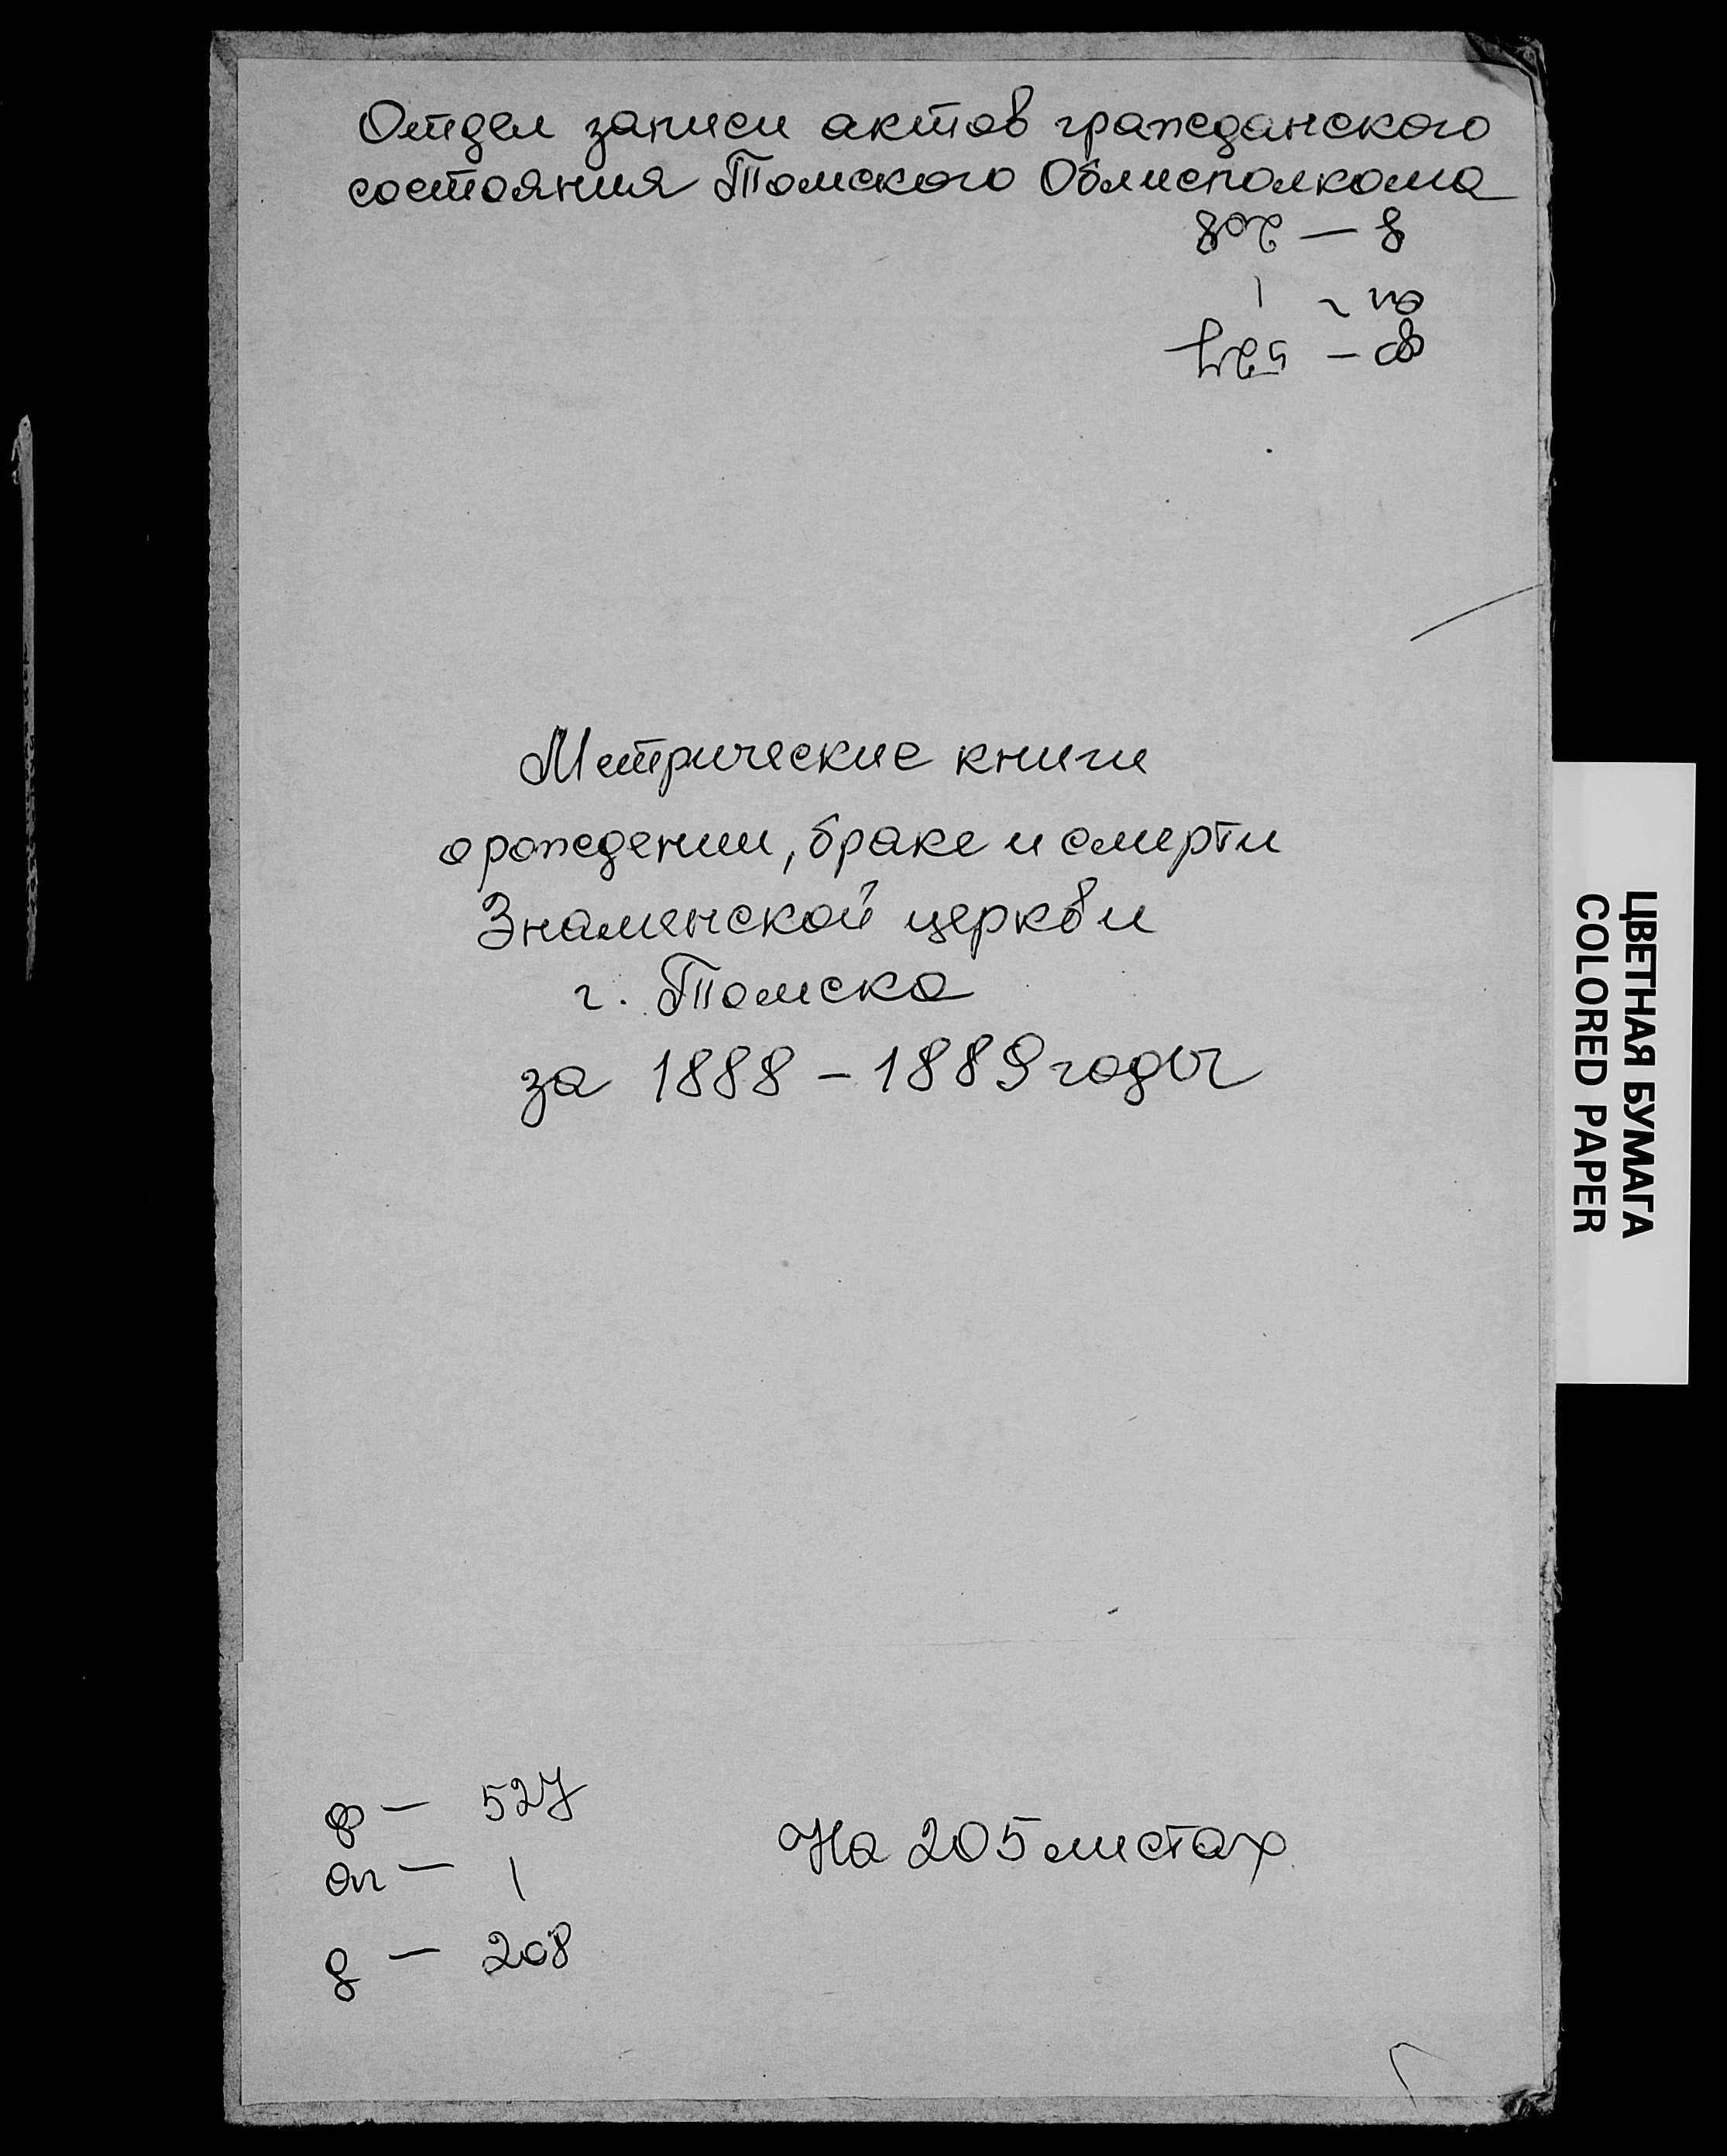 Отдел записи актов гражданского
состояния Томского Облисполкома
д — 208
оп - 1
ф - 527
Метрические книги
о рождении, браке и смерти
Знаменской церкви
г. Томска
за 1888 - 1889 годы
ЦВЕТНАЯ БУМАГА
COLORED PAPER
ф — 527
оп — 1
д — 208
На 205 листах